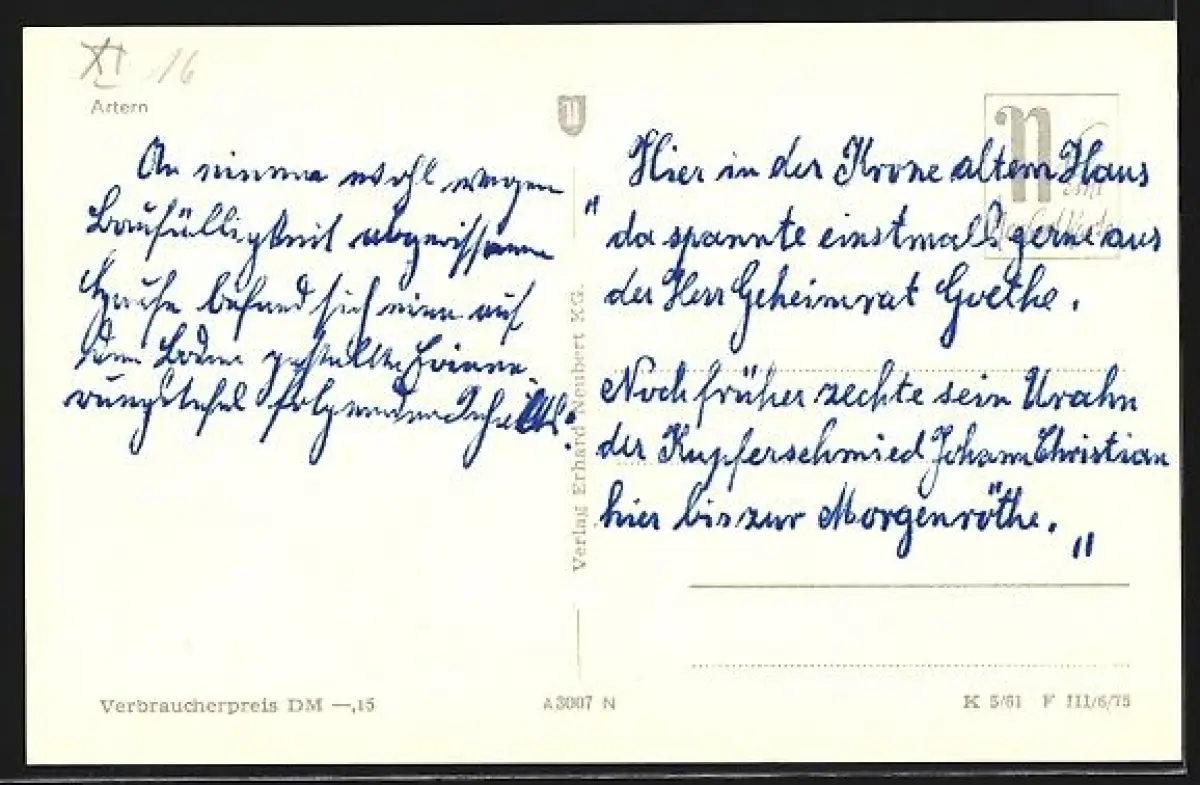 XI 16
Artern
An einem wohl wegen
Baufälligkeit abgerissenen
Hause befand sich eine auf
dem Boden gestellte Erinne-
rungstafel folgenden Inhalts:
Verlag Erhard Neubert KG.
N
„Hier in der Krone altem Haus
da spannte einstmals gerne aus
der Herr Geheimrat Goethe.
Noch früher zechte sein Urahn
der Kupferschmied Johann Christian
hier bis zur Morgenröthe."
Verbraucherpreis DM —,15
A 3007 N
K 5/61 F III/6/75